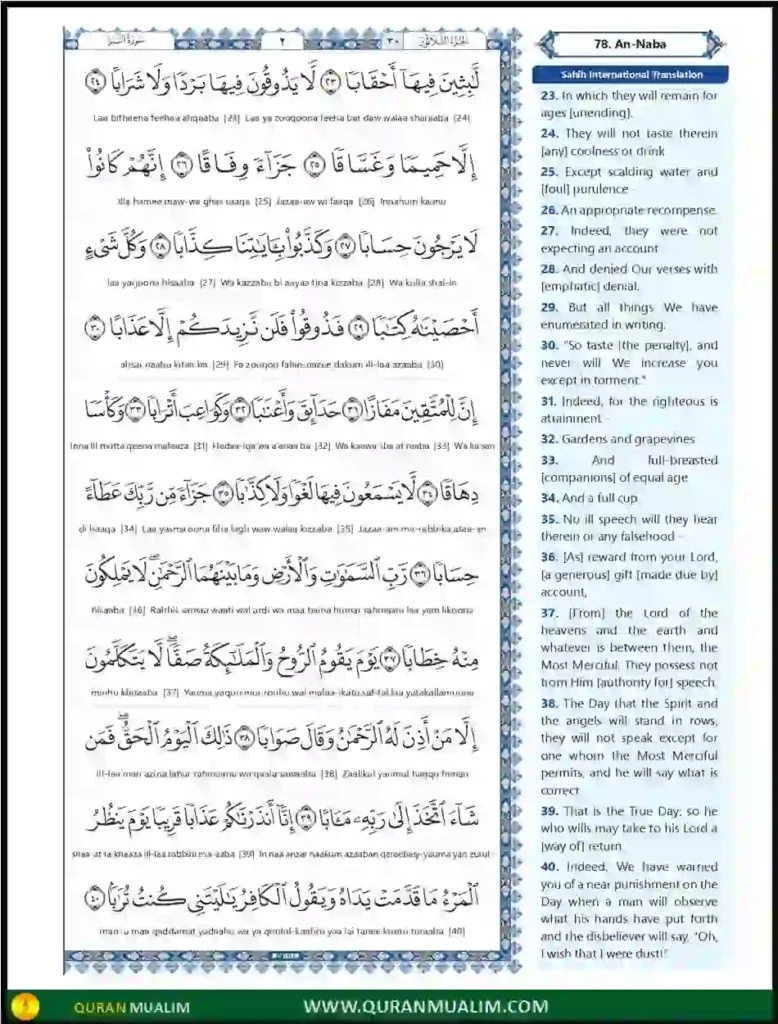 سورة النبأ
٢
٣٠
الجزء الثلاثون
لَّٰبِثِينَ فِيهَآ أَحْقَابًا ٢٣ لَّا يَذُوقُونَ فِيهَا بَرْدًا وَلَا شَرَابًا ٢٤
Laa bitheena feehaa ahqaaba [23] Laa ya zooqoona feeha bar daw walaa sharaaba [24]
إِلَّا حَمِيمًا وَغَسَّاقًا ٢٥ جَزَآءً وِفَاقًا ٢٦ إِنَّهُمْ كَانُوا۟
Illa hamee maw-wa ghas saaqa [25] Jazaa-aw wi faaqa [26] Innahum kaanu
لَا يَرْجُونَ حِسَابًا ٢٧ وَكَذَّبُوا۟ بِـَٔايَٰتِنَا كِذَّابًا ٢٨ وَكُلَّ شَىْءٍ
laa yarjoona hisaaba [27] Wa kazzabu bi aayaa tina kizzaba [28] Wa kulla shai-in
أَحْصَيْنَٰهُ كِتَٰبًا ٢٩ فَذُوقُوا۟ فَلَن نَّزِيدَكُمْ إِلَّا عَذَابًا ٣٠
ahsai naahu kitaa ba [29] Fa zooqoo falan-nazee dakum ill-laa azaaba [30]
إِنَّ لِلْمُتَّقِينَ مَفَازًا ٣١ حَدَآئِقَ وَأَعْنَٰبًا ٣٢ وَكَوَاعِبَ أَتْرَابًا ٣٣ وَكَأْسًا
Inna lil mutta qeena mafaaza [31] Hadaa-iqa wa a'anaa ba [32] Wa kaawa 'iba at raaba [33] Wa ka'san
دِهَاقًا ٣٤ لَّا يَسْمَعُونَ فِيهَا لَغْوًا وَلَا كِذَّٰبًا ٣٥ جَزَآءً مِّن رَّبِّكَ عَطَآءً
di haaqa [34] Laa yasma oona fiha lagh waw walaa kizzaba [35] Jazaa-am-mir-rabbika ataa-an
حِسَابًا ٣٦ رَّبِّ ٱلسَّمَٰوَٰتِ وَٱلْأَرْضِ وَمَا بَيْنَهُمَا ٱلرَّحْمَٰنِ ۖ لَا يَمْلِكُونَ
hisaaba [36] Rabbis samaa waati wal ardi wa maa baina humar rahmaani laa yam likoona
مِنْهُ خِطَابًا ٣٧ يَوْمَ يَقُومُ ٱلرُّوحُ وَٱلْمَلَٰٓئِكَةُ صَفًّا ۖ لَّا يَتَكَلَّمُونَ
minhu khitaaba [37] Yauma yaqoo mur roohu wal malaa-ikatu saf-fal laa yatakallamoona
إِلَّا مَنْ أَذِنَ لَهُ ٱلرَّحْمَٰنُ وَقَالَ صَوَابًا ٣٨ ذَٰلِكَ ٱلْيَوْمُ ٱلْحَقُّ ۖ فَمَن
ill-laa man azina lahur rahmaanu wa qaala sawaaba [38] Zaalikal yaumul haqqu faman
شَآءَ ٱتَّخَذَ إِلَىٰ رَبِّهِۦ مَـَٔابًا ٣٩ إِنَّآ أَنذَرْنَٰكُمْ عَذَابًا قَرِيبًا يَوْمَ يَنظُرُ
shaa-at ta khaaza ill-laa rabbihi ma-aaba [39] In naa anzar naakum azaaban qareebaiy-yauma yan zurul
ٱلْمَرْءُ مَا قَدَّمَتْ يَدَاهُ وَيَقُولُ ٱلْكَافِرُ يَٰلَيْتَنِى كُنتُ تُرَٰبًۢا ٤٠
mar-u maa qaddamat yadaahu wa ya qoolul-kaafiru yaa lai tanee kuntu turaaba [40]
78. An-Naba
Sahih International Translation
23. In which they will remain for
ages [unending].
24. They will not taste therein
[any] coolness or drink
25. Except scalding water and
[foul] purulence -
26. An appropriate recompense.
27. Indeed, they were not
expecting an account
28. And denied Our verses with
[emphatic] denial.
29. But all things We have
enumerated in writing.
30. "So taste [the penalty], and
never will We increase you
except in torment."
31. Indeed, for the righteous is
attainment -
32. Gardens and grapevines
33. And full-breasted
[companions] of equal age
34. And a full cup
35. No ill speech will they hear
therein or any falsehood -
36. [As] reward from your Lord,
[a generous] gift [made due by]
account,
37. [From] the Lord of the
heavens and the earth and
whatever is between them, the
Most Merciful. They possess not
from Him [authority for] speech.
38. The Day that the Spirit and
the angels will stand in rows,
they will not speak except for
one whom the Most Merciful
permits, and he will say what is
correct.
39. That is the True Day; so he
who wills may take to his Lord a
[way of] return.
40. Indeed, We have warned
you of a near punishment on the
Day when a man will observe
what his hands have put forth
and the disbeliever will say, "Oh,
I wish that I were dust!"
QURAN MUALIM
WWW.QURANMUALIM.COM